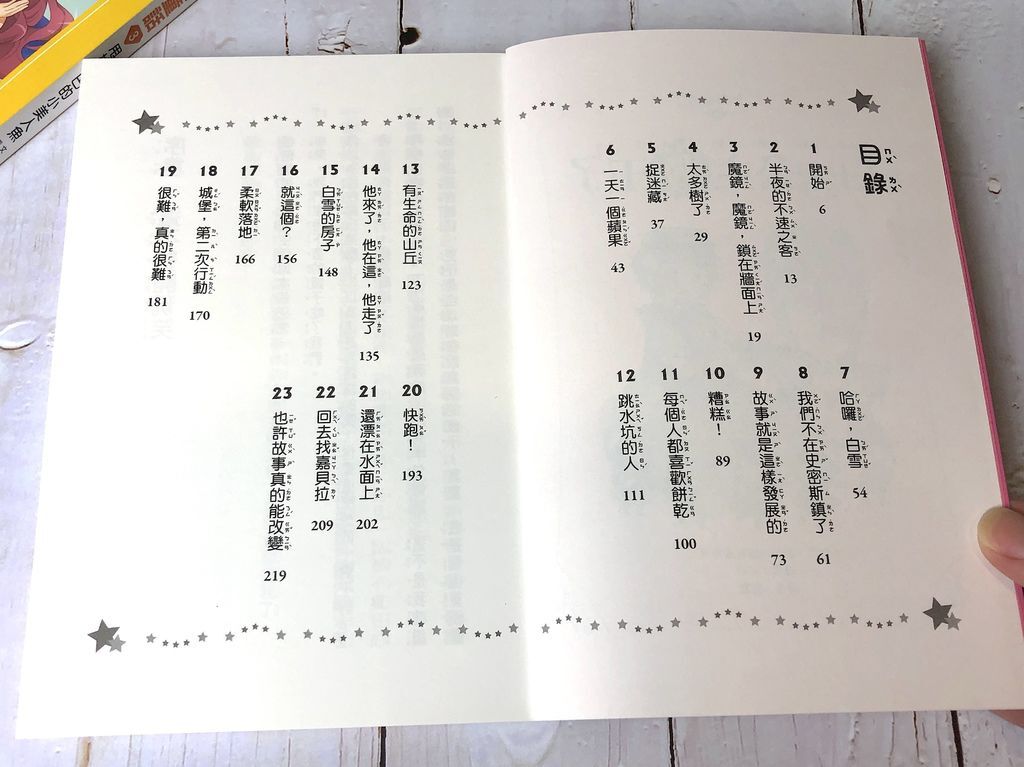 目錄
1 開始 6
2 半夜的不速之客 13
3 魔鏡，魔鏡，鎖在牆面上 19
4 太多樹了 29
5 捉迷藏 37
6 一天一個蘋果 43
7 哈囉，白雪 54
8 我們不在史密斯鎮了 61
9 故事就是這樣發展的 73
10 糟糕！ 89
11 每個人都喜歡餅乾 100
12 跳水坑的人 111
13 有生命的山丘 123
14 他來了，他在這，他走了 135
15 白雪的房子 148
16 就這個？ 156
17 柔軟落地 166
18 城堡，第二次行動 170
19 很難，真的很難 181
20 快跑！ 193
21 還漂在水面上 202
22 回去找嘉貝拉 209
23 也許故事真的能改變 219
3
的小美人魚